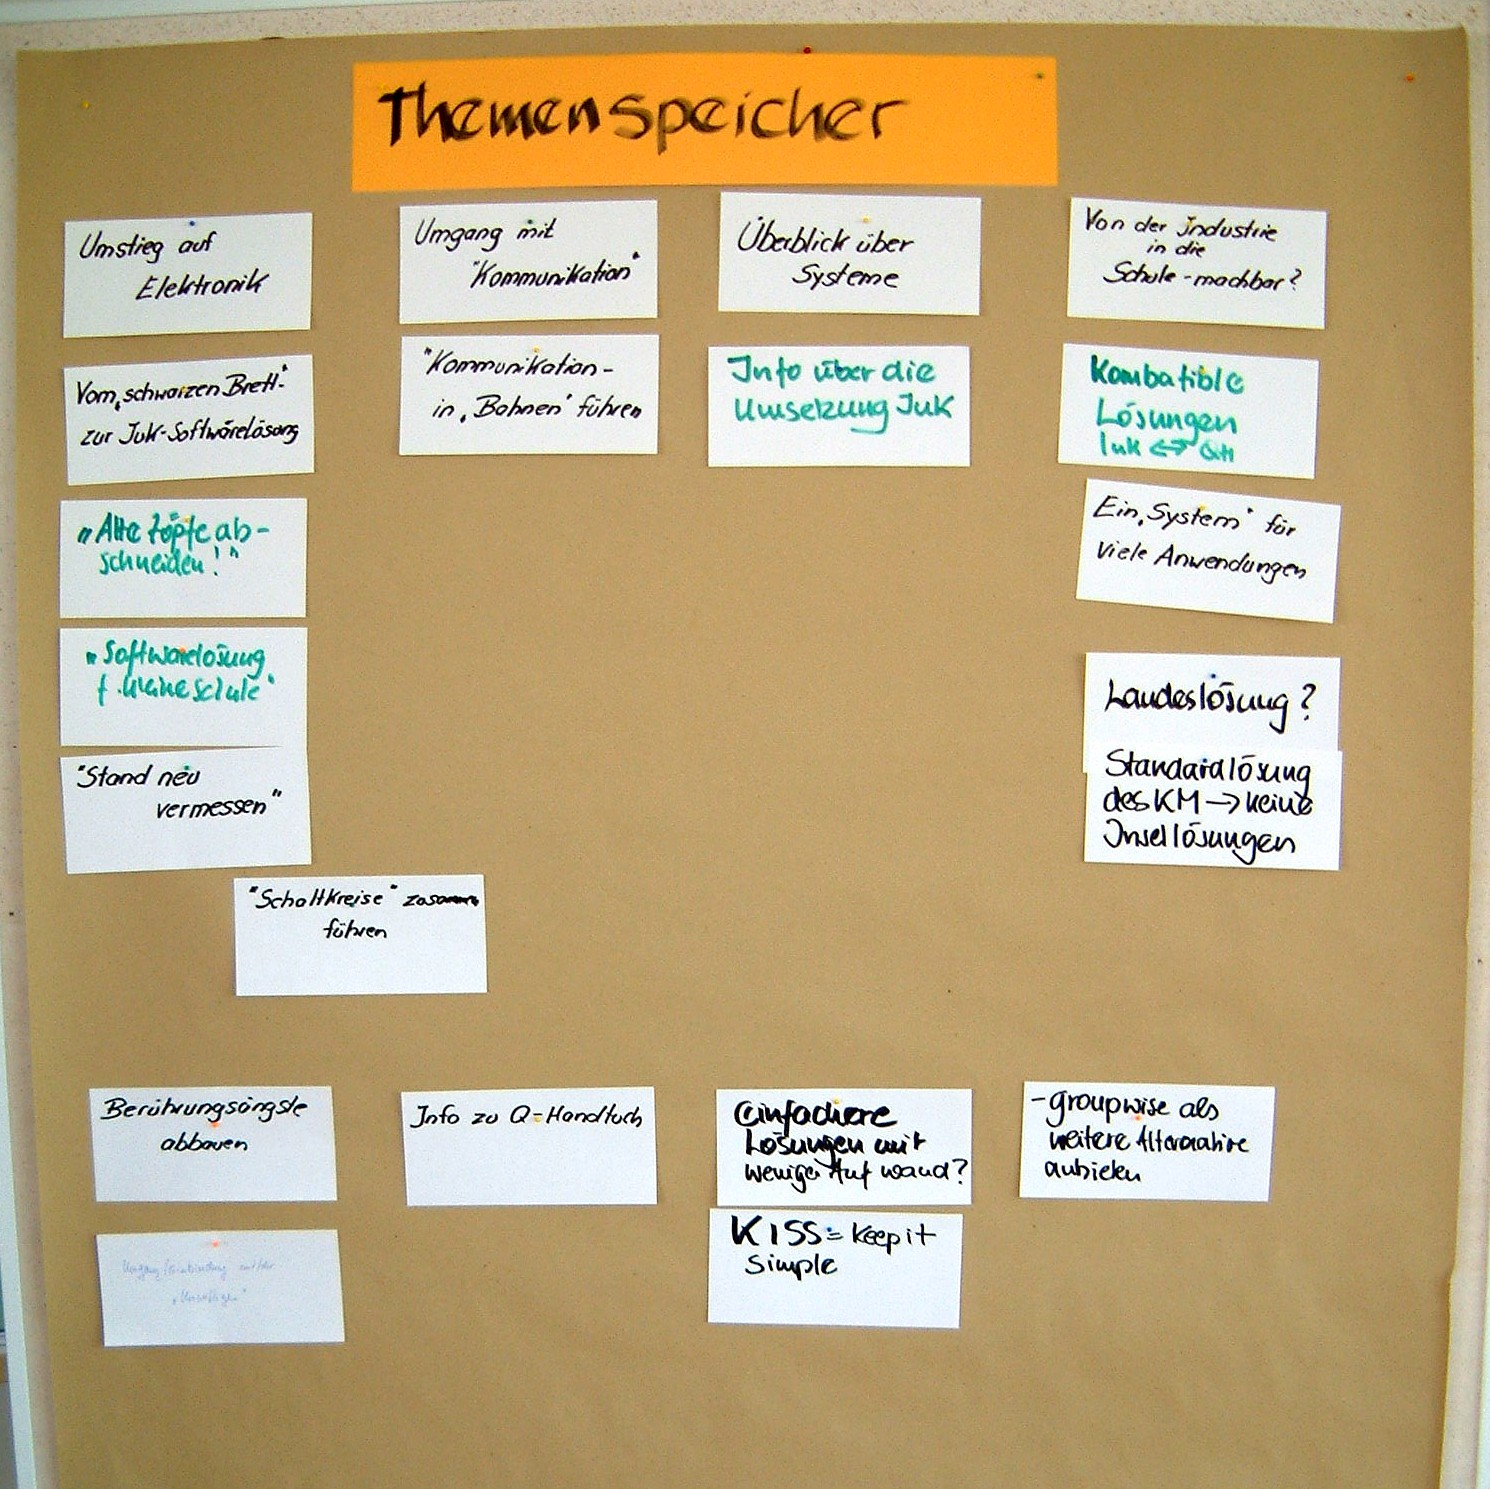 Themenspeicher
Umstieg auf
Elektronik
Vom „schwarzen Brett"-
zur JuK-Softwärelösung
„Alte Zöpfe ab-
schneiden!"
„Softwarelösung
f. kleine Schule"
"Stand neu
vermessen"
"Schaltkreise" zusammen
führen
Umgang mit
"Kommunikation"
"Kommunikation-
in „Bahnen" führen
Überblick über
Systeme
Info über die
Umsetzung JuK
Von der Industrie
in die
Schule - machbar?
Kombatible
Lösungen
IuK <=>
Ein „System" für
viele Anwendungen
Landeslösung?
Standardlösung
des KM → keine
Insellösungen
Berührungsängste
abbauen
Info zu Q-Handbuch
einfachere
Lösungen mit
weniger Aufwand?
KISS = Keep it
simple
- groupwise als
weitere Alternative
anbieten